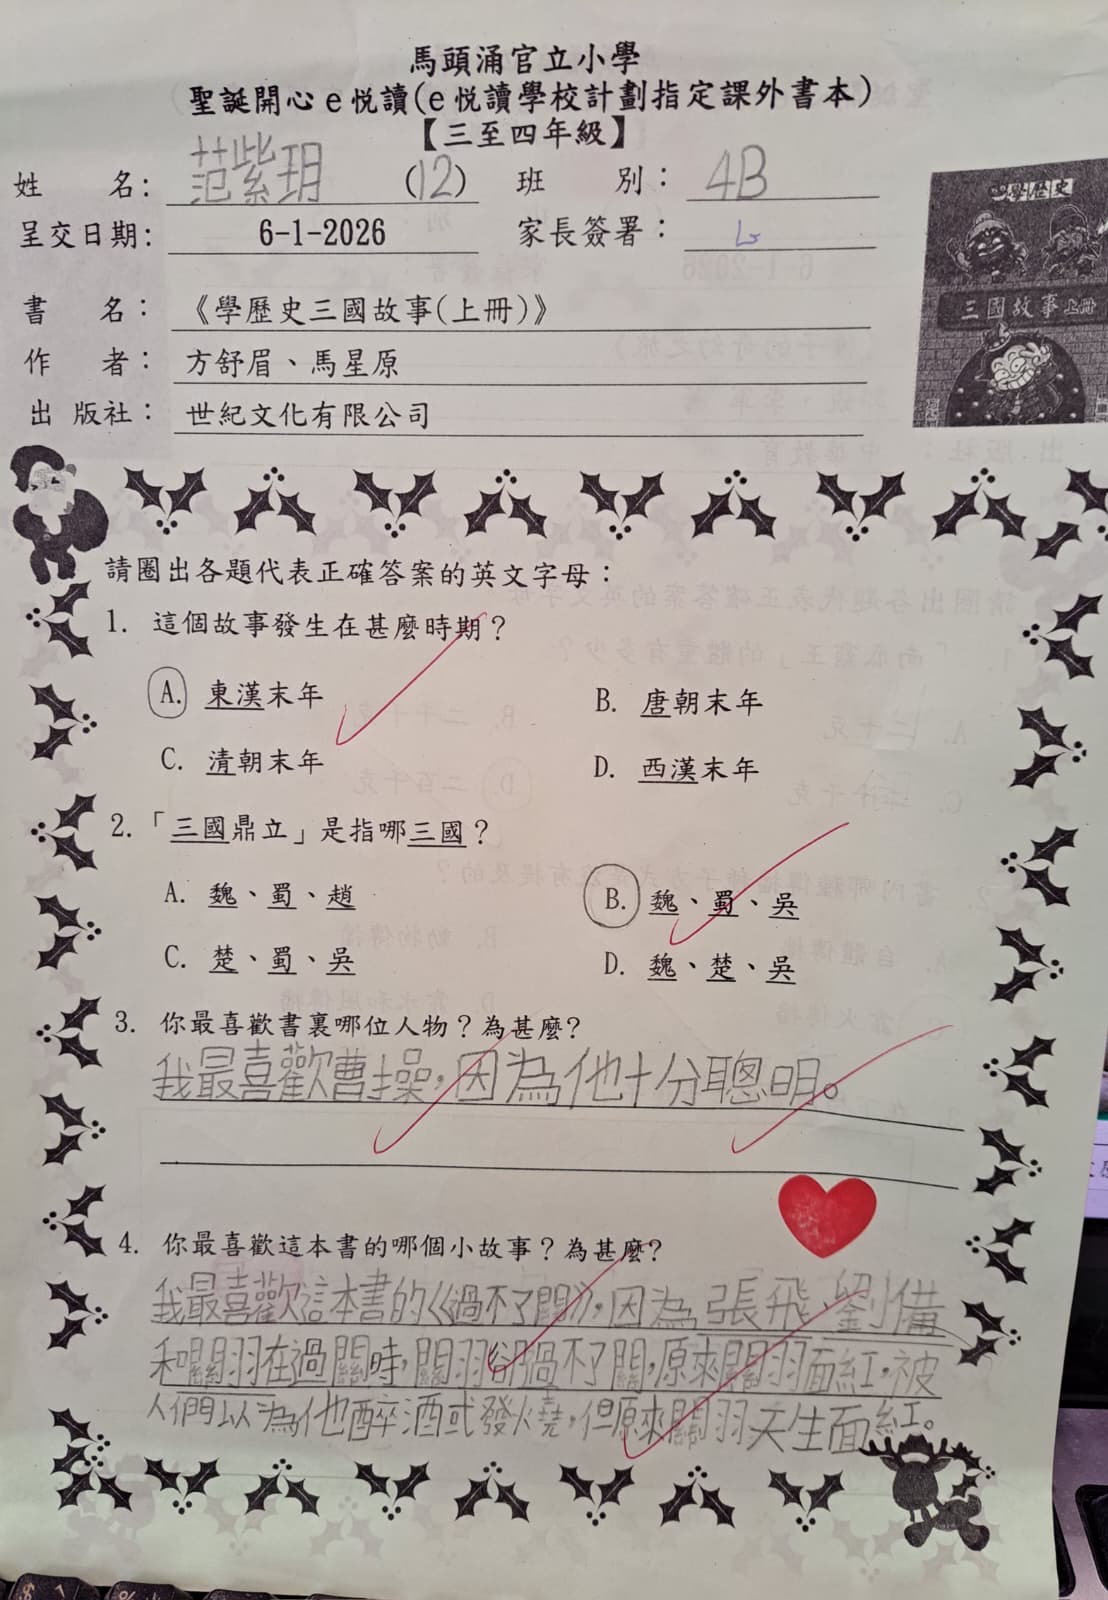 馬頭涌官立小學
聖誕開心e悅讀(e悅讀學校計劃指定課外書本)
【三至四年級】
姓名: 范紫玥 (12) 班別: 4B
呈交日期: 6-1-2026 家長簽署:
書名: 《學歷史三國故事(上冊)》
作者: 方舒眉、馬星原
出版社: 世紀文化有限公司
學歷史
三國故事上冊
請圈出各題代表正確答案的英文字母:
1. 這個故事發生在甚麼時期?
A. 東漢末年 B. 唐朝末年
C. 清朝末年 D. 西漢末年
2. 「三國鼎立」是指哪三國?
A. 魏、蜀、趙 B. 魏、蜀、吳
C. 楚、蜀、吳 D. 魏、楚、吳
3. 你最喜歡書裏哪位人物?為甚麼?
我最喜歡曹操,因為他十分聰明。
4. 你最喜歡這本書的哪個小故事?為甚麼?
我最喜歡這本書的《過不了關》,因為張飛、劉備
和關羽在過關時,關羽卻過不了關,原來關羽面紅,被
人們以為他醉酒或發燒,但原來關羽天生面紅。